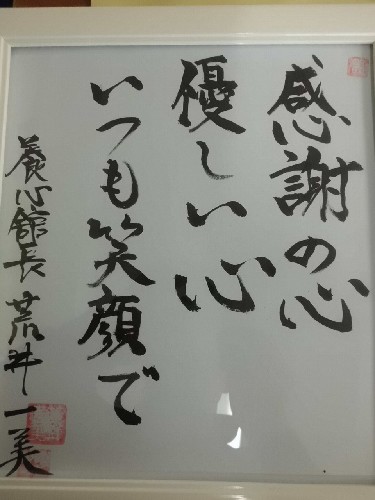 感謝の心
優しい心
いつも笑顔で
養心館長 荒井一美